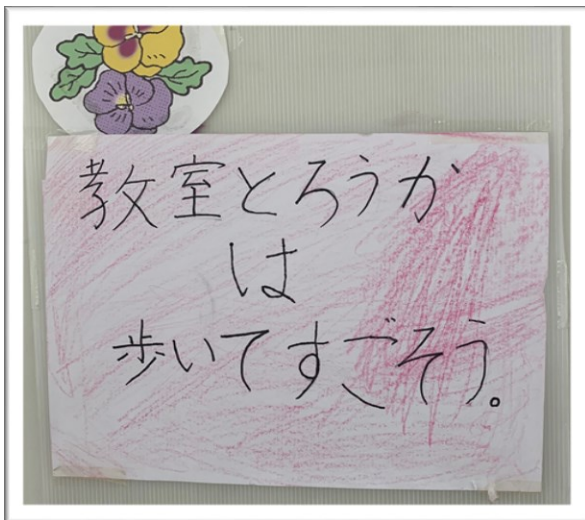 教室とろうか
は
歩いてすごそう。